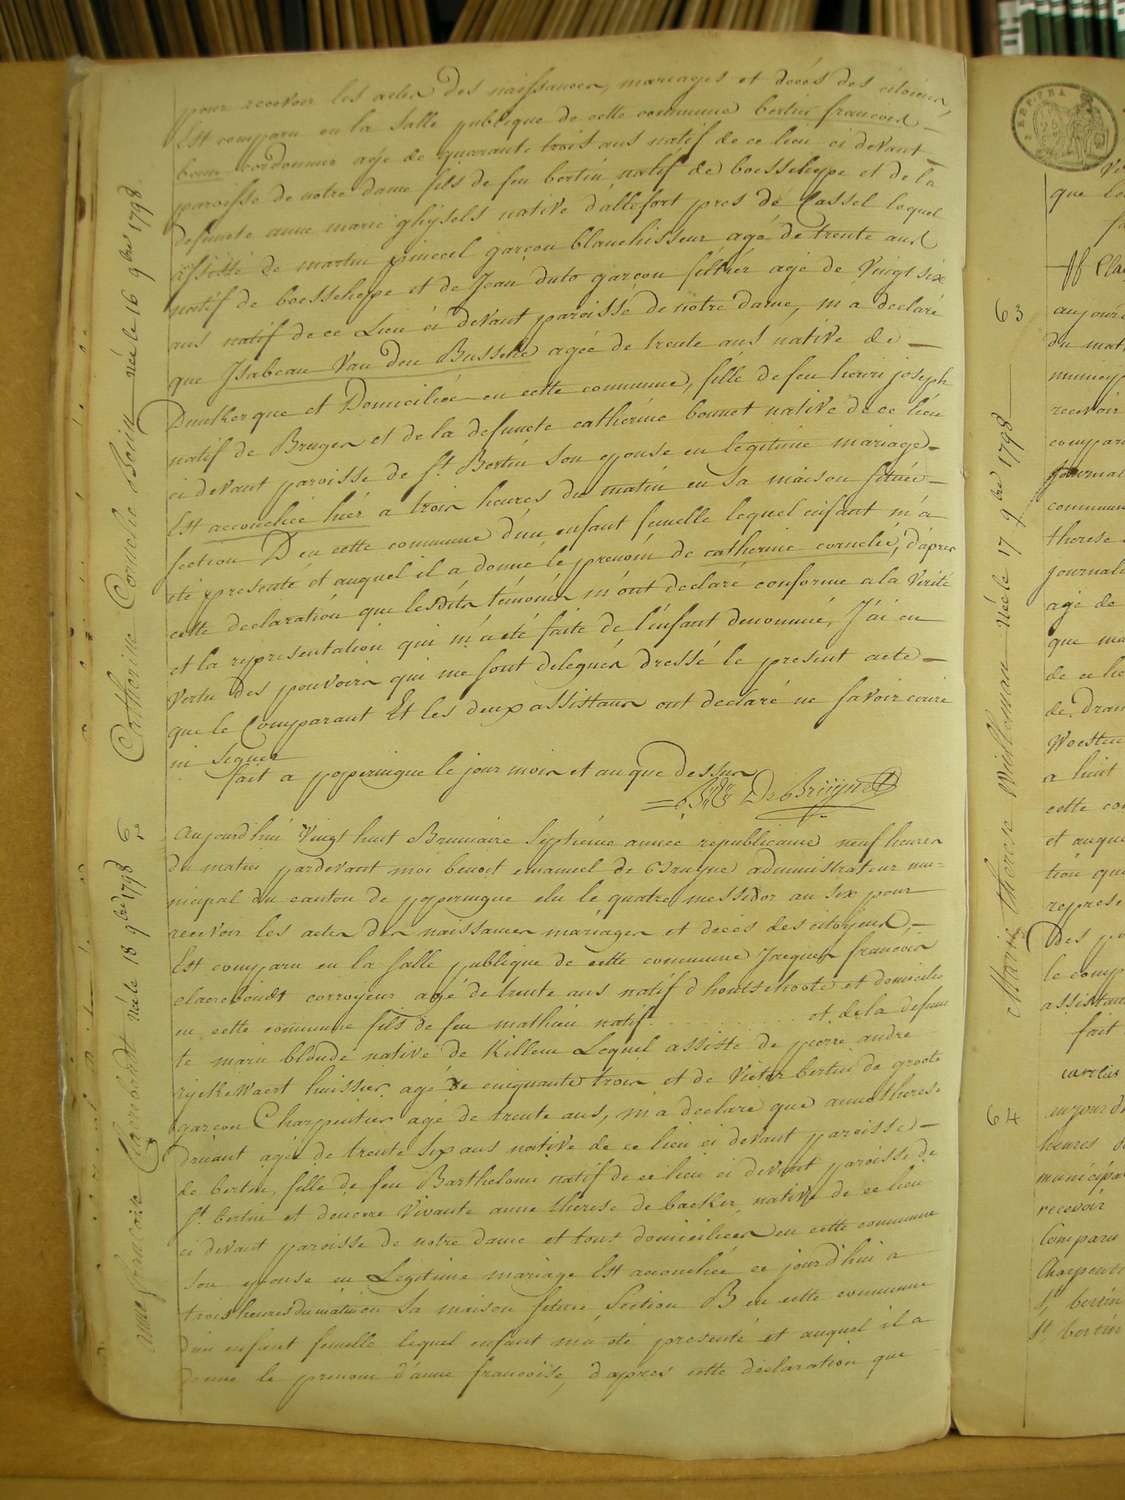 pour recevoir les actes des naissances, mariages et décès des citoiens,
Est comparu en la salle publique de cette commune bertin francois
cordonnier agé de quarante trois ans natif de ce lieu ci devant
paroisse de notre dame fils de feu bertin natif de boesschepe et de la
defuncte anne marie ghÿsels native d'allefort pres de Cassel lequel
assisté de martin garçon blanchisseur agé de trente ans
natif de boesschepe et de Jean duto garçon agé de Vingt six
ans natif de ce Lieu ci devant paroisse de notre dame, m'a declaré
que Isabeau Van den Bussche agée de trente ans native de
Dunkerque et Domiciliée en cette commune, fille de feu henri joseph
natif de Bruges et de la defuncte catherine bonnet native de ce lieu
ci devant paroisse de St Bertin son epouse en legitime mariage
Est accouchée hiér a trois heures du matin en sa maison situéé
section D en cette commune d'un enfant femelle lequel enfant m'a
été presenté et auquel il a donné le prenom de catherine cornelie, d'après
cette declaration que lesdits témoins m'ont declaré conforme a la Verité
et la representation qui m'a eté faite de l'enfant denommé, J'ai en
Vertu des pouvoirs qui me sont delegués dressé le present acte
que le Comparant Et les deux assistans ont declaré ne savoir ecrire
ni signer
fait a poperingue le jour mois et an que dessus
De Bruÿne
Aujourd'hui Vingt huit Brumaire Septiéme année republicaine neuf heures
du matin pardevant moi benoit emanuel de Bruyne administrateur mu-
nicipal du canton de poperingue elu le quatre messidor an six pour
recevoir les actes des naissances mariages et décès des citoyens,
Est comparu en la salle publique de cette commune Jacques francois
claerebondt corroyeur agé de trente ans natif d'houtschoote et domicilié
en cette commune fils de feu mathieu natif . . . . et de la defunc
te marie blonde native de Killem Lequel assisté de pierre andré
rÿckewaert huissier agé de cinquante trois et de Victor bertin de groote
garçon Charpentier agé de trente ans, m'a declaré que anne therese
Druant agée de trente six ans native de ce lieu ci devant paroisse
de bertin, fille de feu Barthelomi natif de ce lieu ci devant paroisse de
St bertin et d'encore Vivante anne therese de backer native de ce lieu
ci devant paroisse de notre dame et tous domiciliées en cette commune
son epouse en Legitime mariage Est accouchée ce jourd'hui a
trois heures du matin en Sa maison située Section B en cette commune
d'un enfant femelle lequel enfant m'a été presenté et auquel il a
donné le prenom d'anne francoise, d'après cette declaration que
Catherine Cornelie née le 16 9bre 1798.
62
anne francoise Claerebondt née le 18 9bre 1798
63
Marie therese née le 17 9bre 1798
64
que
aujour
du mat
municip
recevoir
compar
journal
commun
therese
journali
agé de
que ma
de ce lie
de
a huit
cette co
et auque
tion que
represe
Des po
le comp
assistan
fait
heures
municipa
recevoir
Comparu
Charpenti
St bertin
St bertin